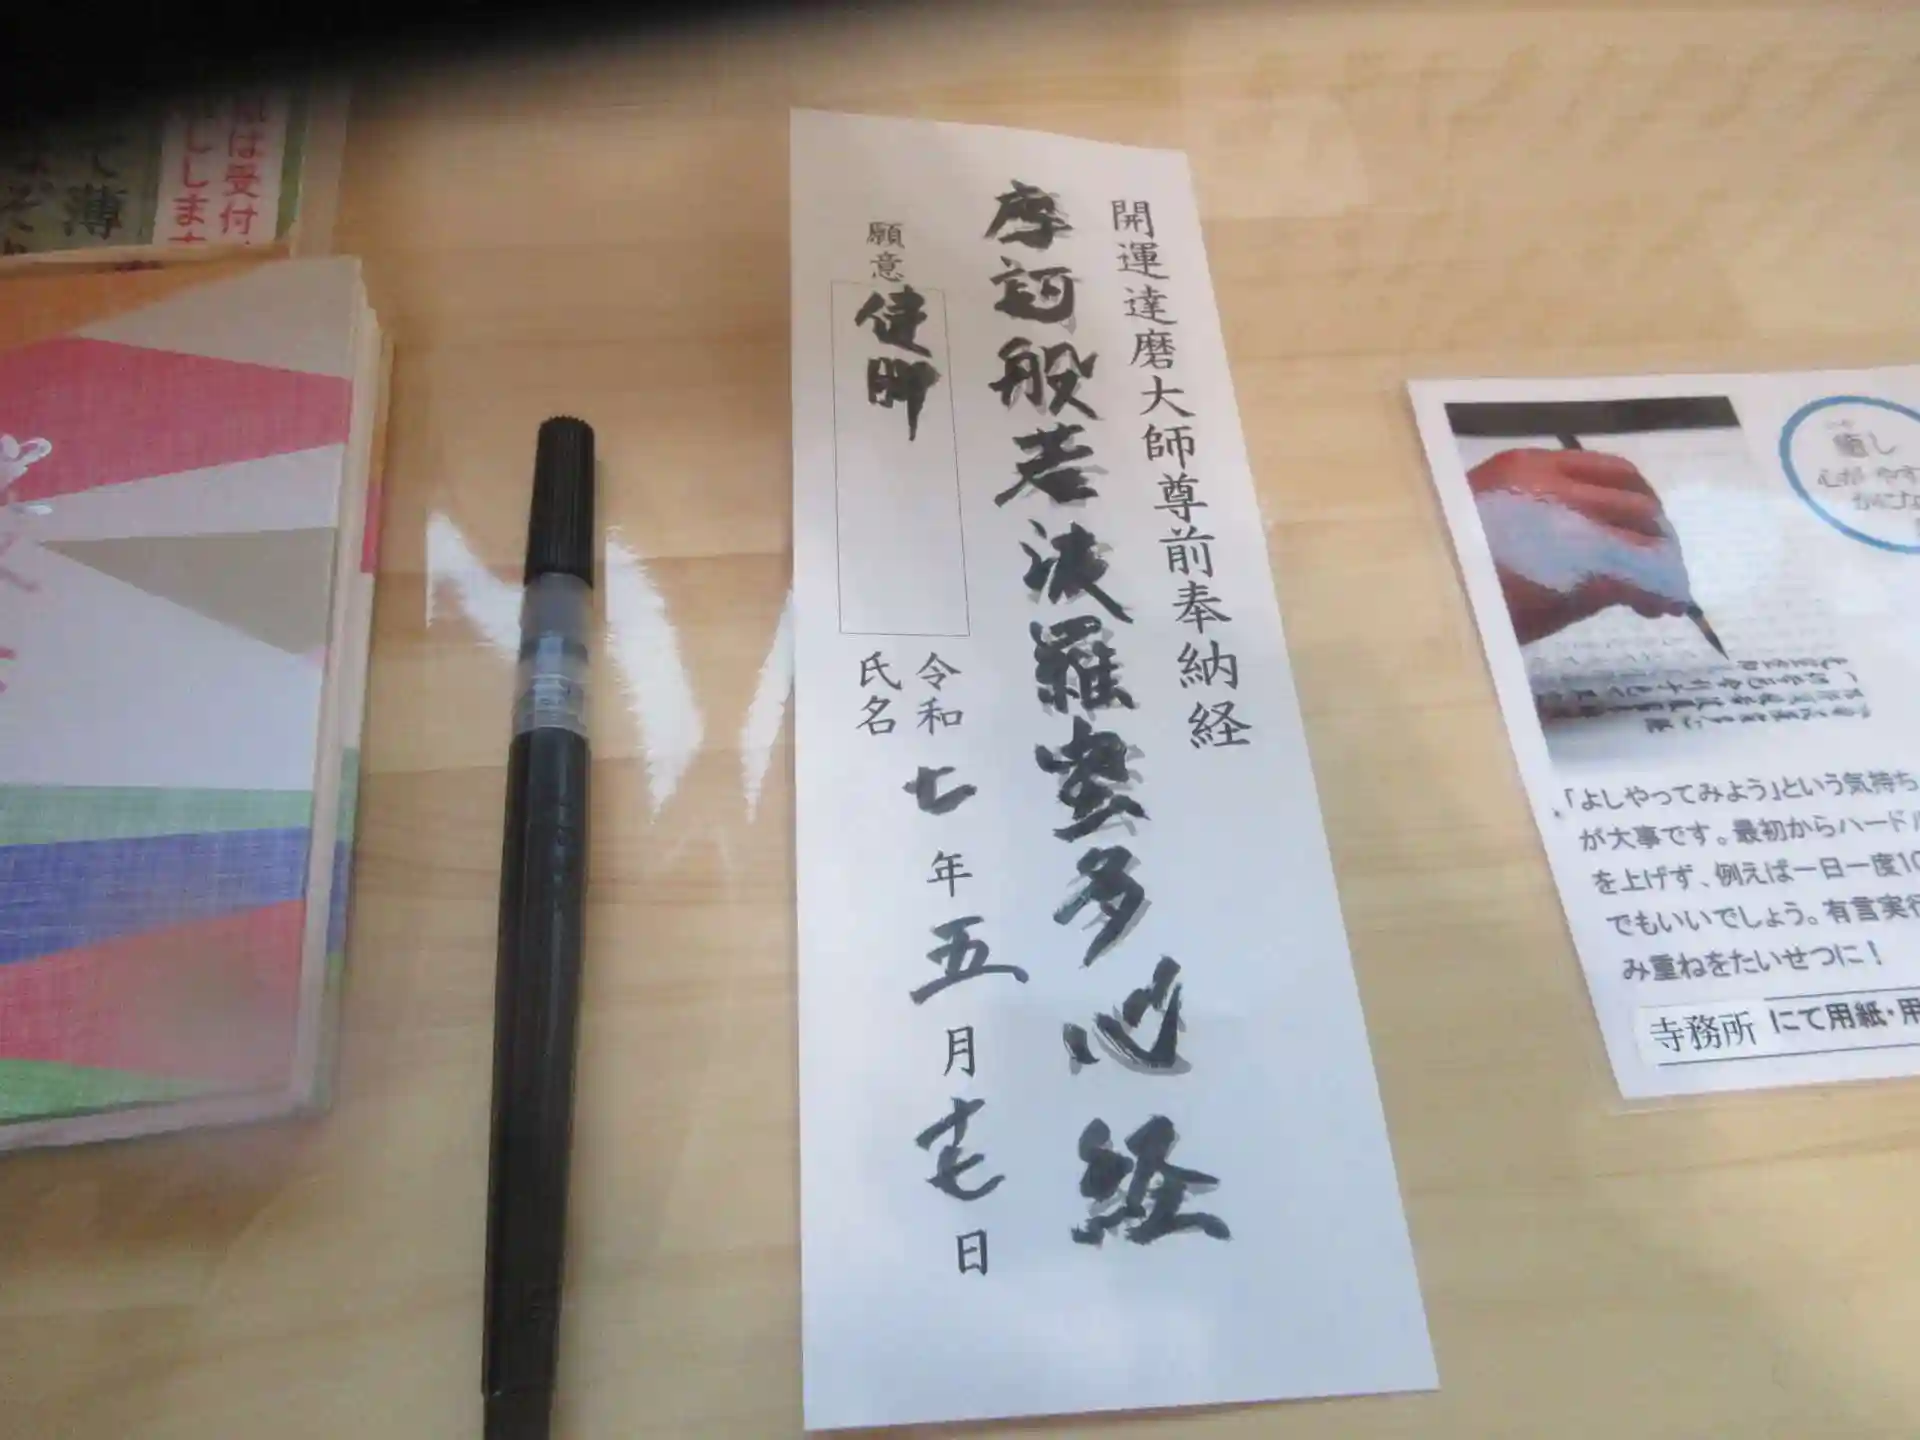 開運達磨大師尊前奉納経
摩訶般若波羅蜜多心経
願意
健脚
令和七年五月十七日
氏名
は受付
します
て薄
癒し
心が やす
「よしやってみよう」という気持ち
が大事です。最初からハードル
を上げず、例えば一日一度10
でもいいでしょう。有言実行
み重ねをたいせつに！
寺務所 にて用紙・用